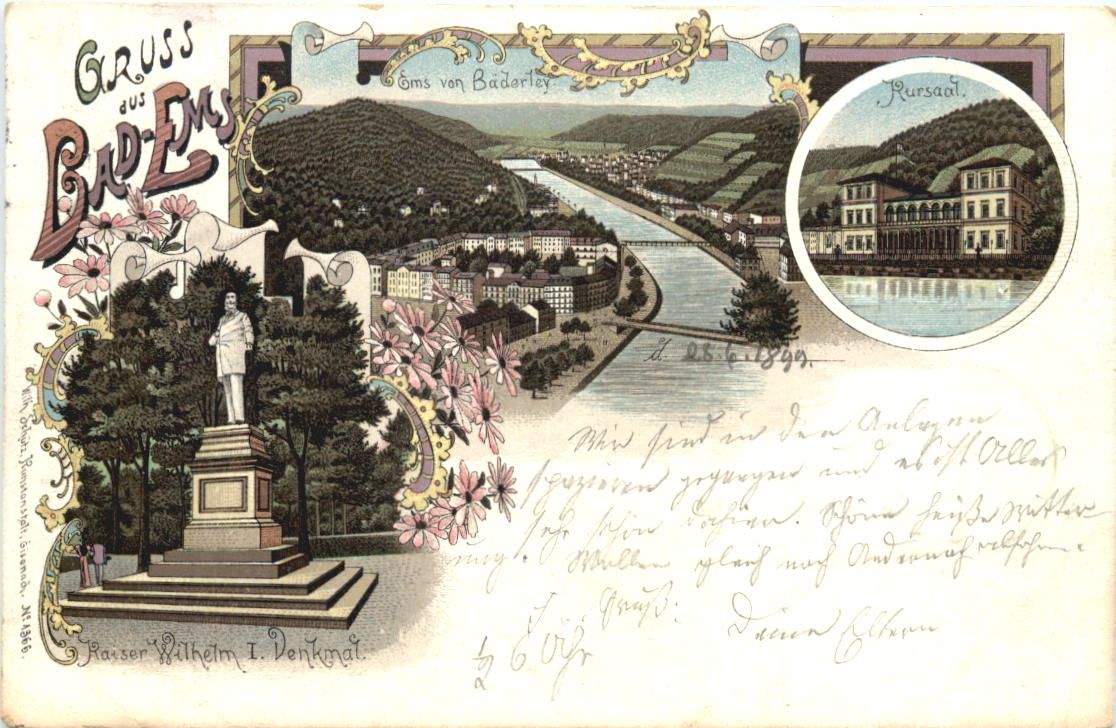 GRUSS
aus
BAD-EMS
Ems von Bäderley
Kursaal.
d. 25.6.1899.
Wir sind in den Anlagen
spazieren gegangen und es ist Alles
sehr schön hier. Schöne heiße Witter-
ung. Wollen gleich nach Andernach abfahren.
Gruß:
Deine Eltern
½ 6 Uhr
Kaiser Wilhelm I. Denkmal.
Wilh. Schütz, Kunstanstalt, Eisenach. No. 1366.